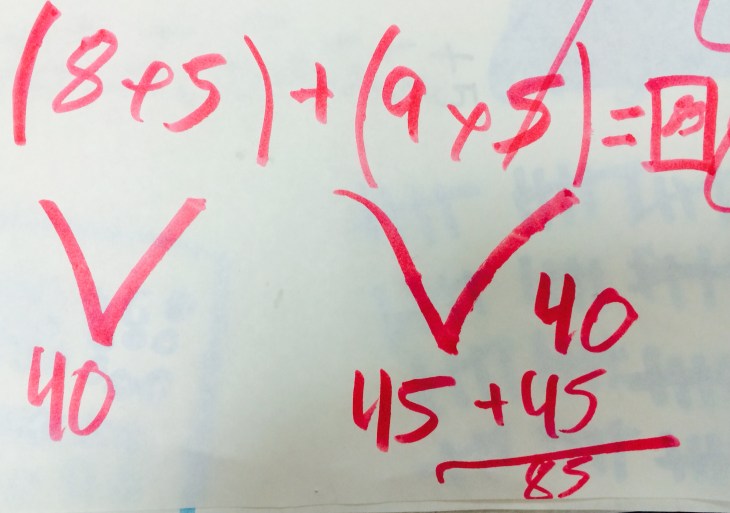 (8×5)+(9×5)=85
40
40
45 +45
85